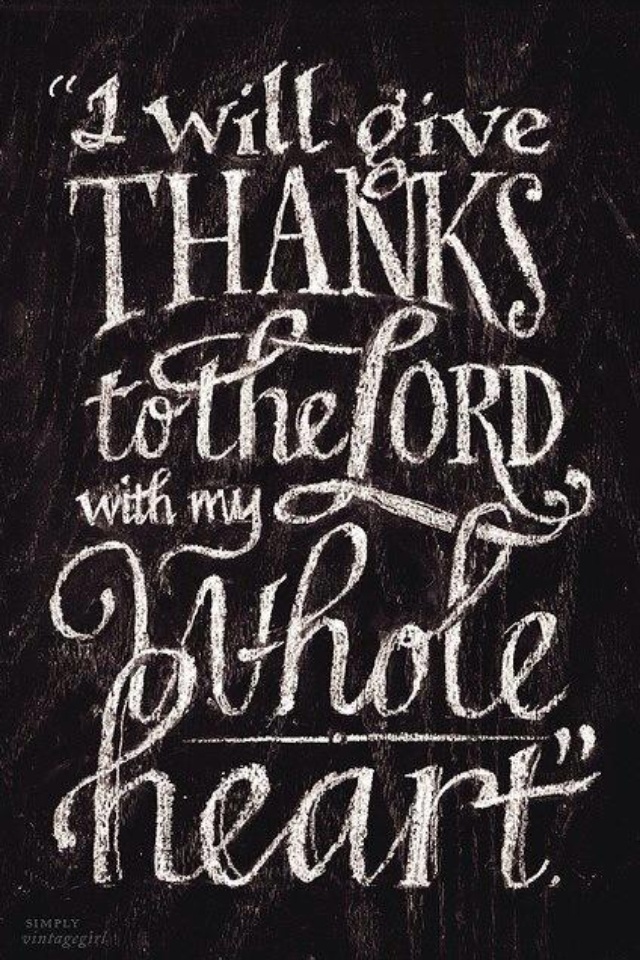 “I will give
THANKS
to the LORD
with my
Whole
heart.”
SIMPLY
vintagegirl